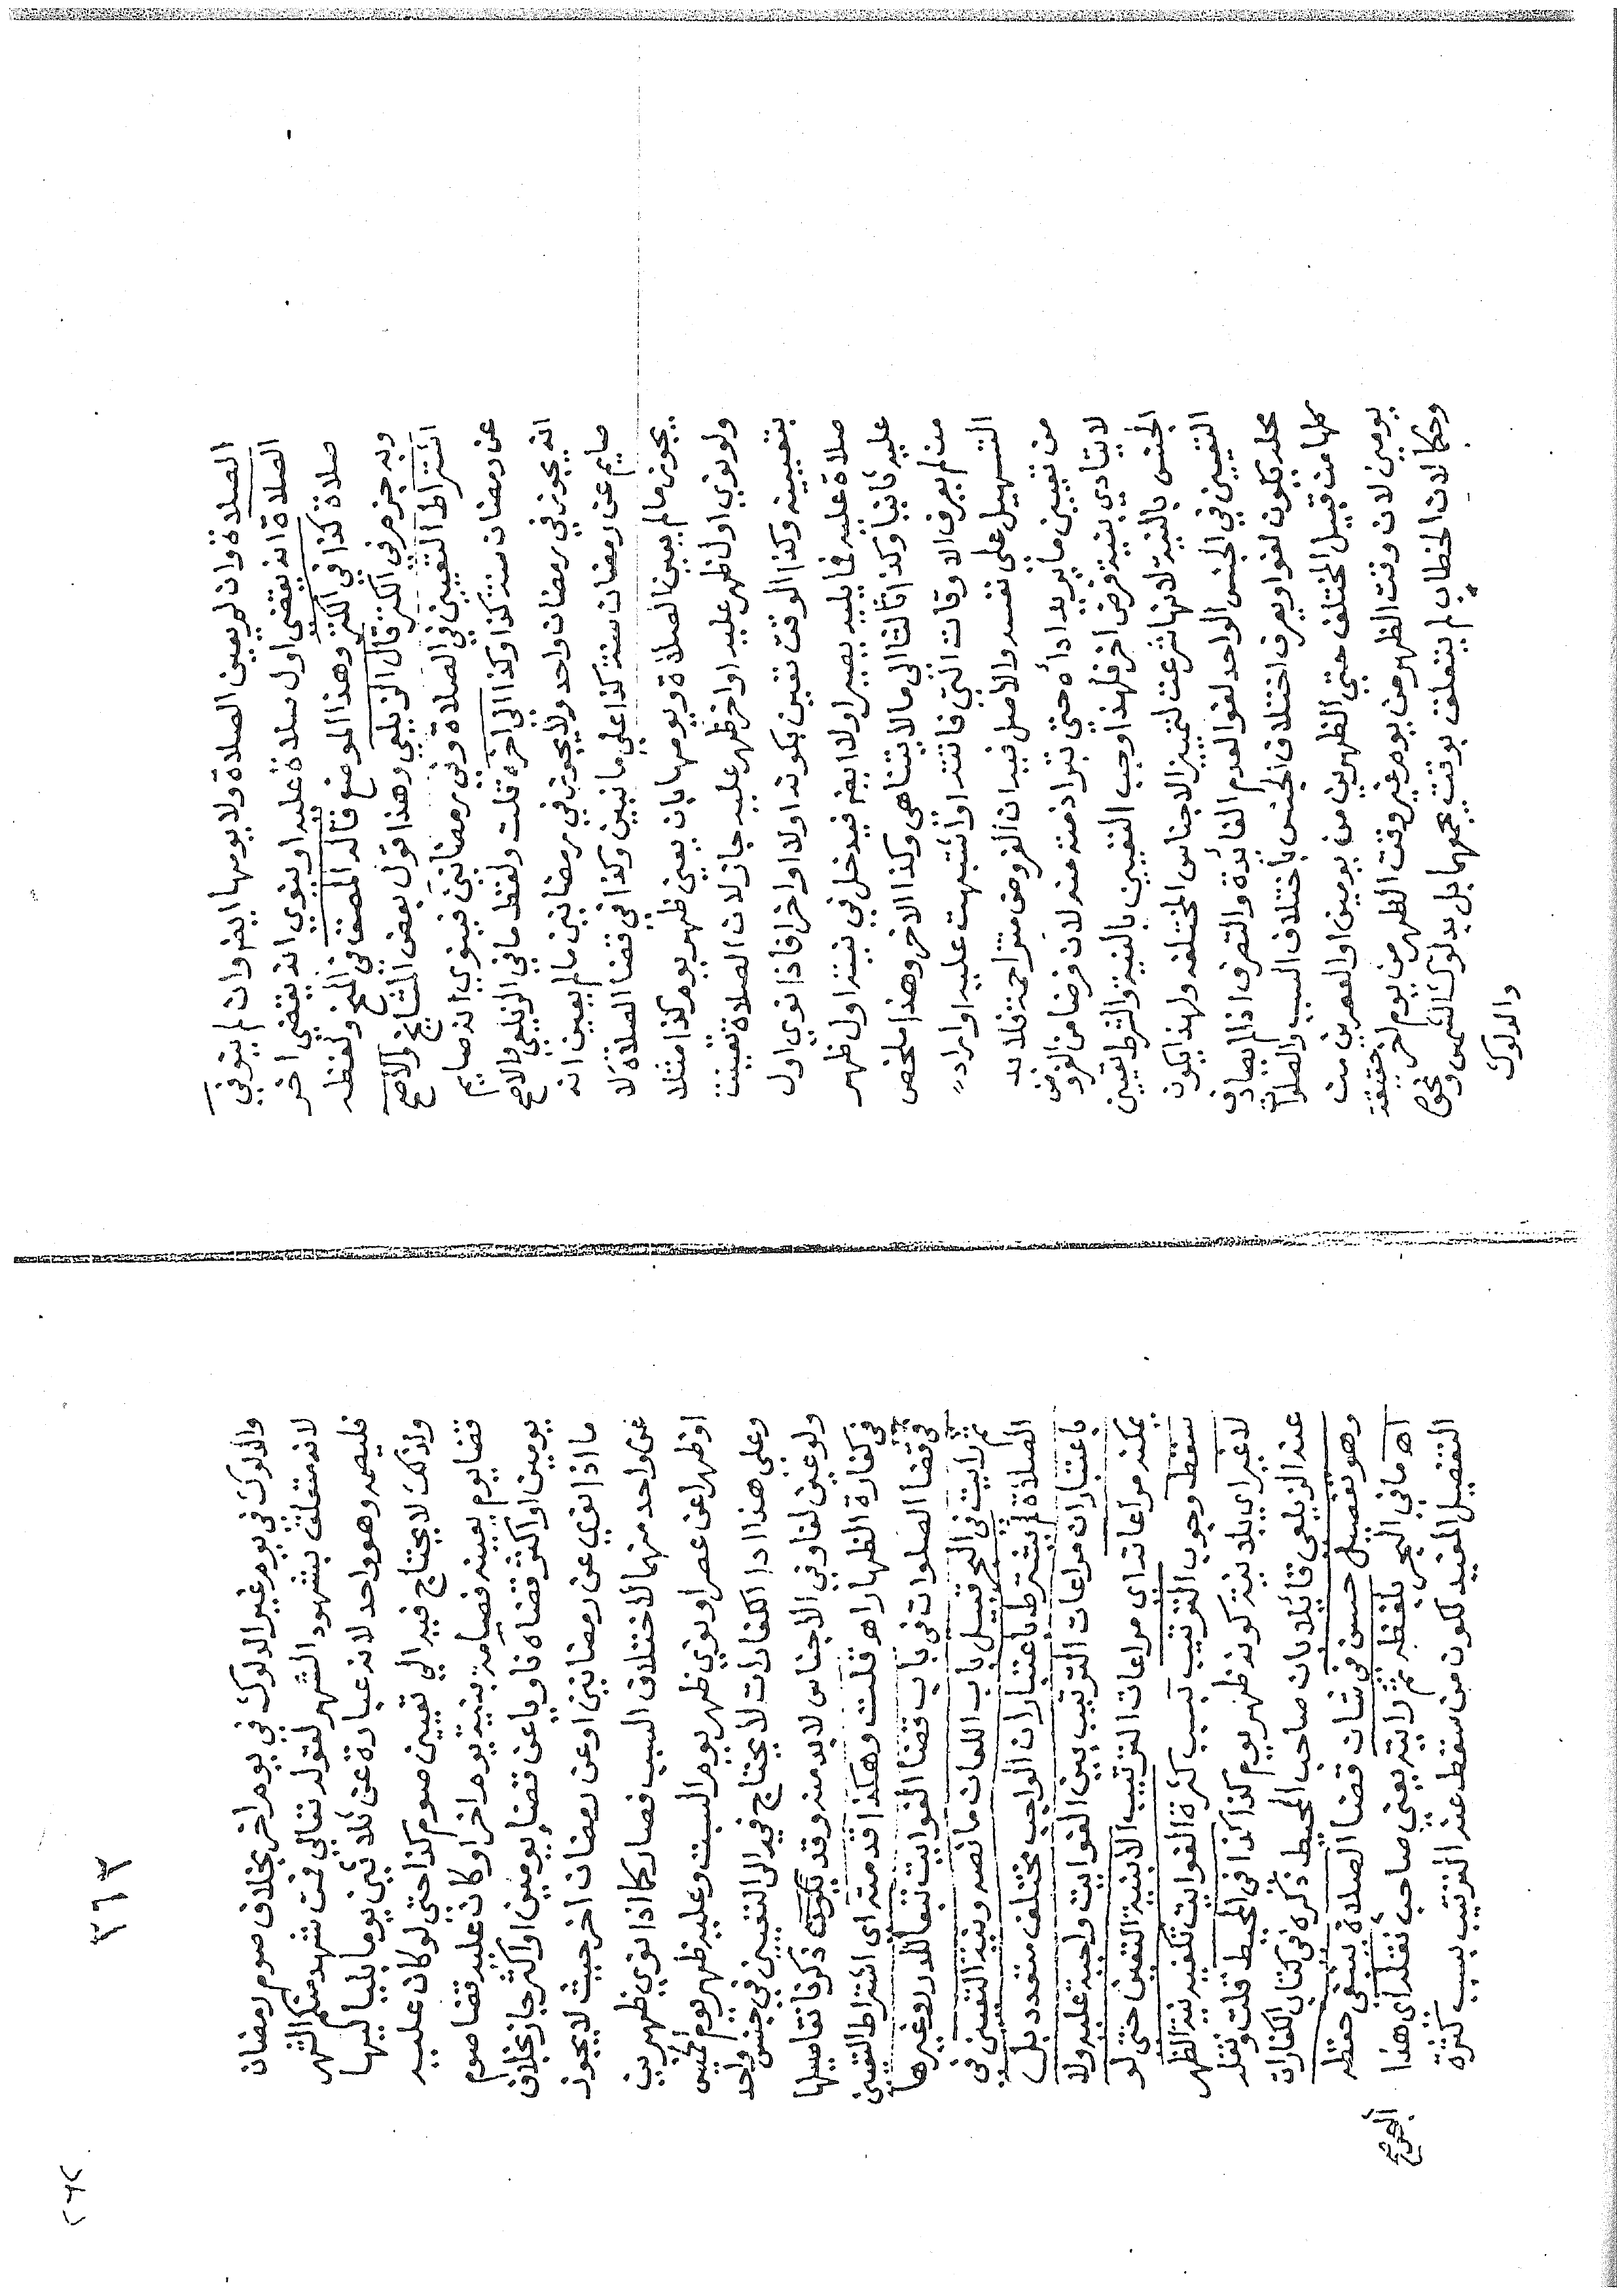 الصلاة وان لم يعين الصلاة ولا يومها ايض وان لم ينوي في
الصلاة انه يقضي اول سلاة عليه او ينوي انه يقضي اخر
صلاة كذا في الكنز وهذا الموضع قاله المصنف في المنح ولفظه
وبه جزم في الكنز قال الزيلعي وهذا قول بعض المشايخ والاصح
اشتراط التعيين في الصلاة وفي رمضانين فينوي انه صايم
عن رمضان سنة كذا وكذا الي اخره قلت ولفظ ما في الزيلعي والاصح
انه يجوز في رمضان واحد ولا يجوز في رمضانين مالم يعين انه
صايم عن رمضان سنة كذا علي ما نبين وكذا في قضا الصلاة لا
يجوز مالم يعين الصلاة ويومها بان يعني ظهر يوم كذا مثلا
ولو نوي اول ظهر عليه او اخر ظهر عليه جاز لان الصلاة تعينت
بتعيينه وكذا الوقت تعين بكونه اولا او اخرا فاذا نوي اول
صلاة عليه فما يليه يصير اولا ايض فيدخل في نيته اول ظهر
عليه ثانيا وكذا ثالثا الى مالا يتناهى وكذا الاخر وهذا ملخص
من لم يعرف الاوقات التي فاتته او اشتبهت عليه او اراد
التسهيل على نفسه والاصل فيه ان الفروض متزاحمة فلا بد
من تعيين ما يريد اداه حتي تبرا ذمته منه لان فرضا من الفروض
لا يتادي بنية فرض اخر فلهذا وجب التعيين بالنية والشرط تعيين
الجنس بالنية لانها شرعت لتمييز الاجناس المختلفه ولهذا يكون
التعيين في الجنس الواحد لغوا لعدم الفائدة والتصرف اذا لم يصادف
محله يكون لغوا ويعرف اختلاف الجنس باختلاف السبب والصلوات
كلها من قبيل المختلف حتي الظهرين من يومين او العصرين من
يومين لان وقت الظهر من يوم غير وقت الظهر من يوم اخر حقيقة
وحكما لان الخطاب لم يتعلق بوقت يجمعهما بل بدلوك الشمس ونحوه
والدلوك
والدلوك في يوم غير الدلوك في يوم اخر بخلاف صوم رمضان
لانه متعلق بشهود الشهر لقوله تعالي فمن شهد منكم الشهر
فليصمه وهو واحد لانه عبارة عن ثلاثين يوما بلياليها
ولذلك لا يحتاج فيه الي تعيين صوم كذا حتي لو كان عليه
قضا يوم بعينه فصامه بنية يوم اخر او كان عليه قضا صوم
يومين او اكثر فقضاه ناويا عن قضا يومين او اكثر جاز بخلاف
ما اذا نوي عن رمضانين او عن رمضان اخر حيث لا يجوز
عن واحد منهما لاختلاف السبب فصار كما اذا نوي ظهرين
او ظهرا عن عصر او نوي ظهر يوم السبت وعليه ظهر يوم الخميس
وعلى هذا ادا الكفارات لا يحتاج فيه الى التعيين في جنس واحد
ولو عين لغا وفي الاجناس لا بد منه وقد ذكرنا تفاصيلها
في كفارة الظهار اه قلت وهكذا قدمته اى اشتراط التعيين
في قضا الصلوات في باب قضا الفوايت تبعا للدرر وغيرها
ثم رايت في البحر قبيل باب اللعان ما نصه ونية التعيين في
الصلاة لم تشترط باعتبار ان الواجب مختلف متعدد بل
باعتبار ان مراعات الترتيب بين الفوايت واجبة عليه ولا
يمكنه مراعاته اى مراعات الترتيب الا بنية التعيين حتى لو
سقط وجوب الترتيب بسبب كثرة الفوايت تكفيه نية الظهر
لا غير اي بلا نية كونه ظهر يوم كذا كذا في المحيط قلت ونقله
عند الزيلعى قائلا بان صاحب المحيط ذكره في كتاب الكفارات
وهو تفصيل حسن في شان قضا الصلاة ينبغى حفظه
اه ما في البحر بلفظه ثم رايته يعني صاحب البحر نقله اى هذا
التفصيل المفيد لكون من سقط عنه الترتيب بسبب كثرة
٣٦٣
٢٦٢